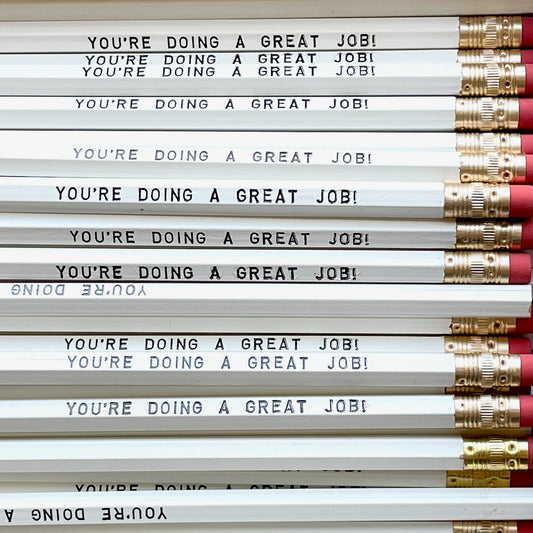 YOU'RE DOING A GREAT JOB!
YOU'RE DOING A GREAT JOB!
YOU'RE DOING A GREAT JOB!
YOU'RE DOING A GREAT JOB!
YOU'RE DOING A GREAT JOB!
YOU'RE DOING A GREAT JOB!
YOU'RE DOING A GREAT JOB!
YOU'RE DOING A GREAT JOB!
YOU'RE DOING
YOU'RE DOING A GREAT JOB!
YOU'RE DOING A GREAT JOB!
YOU'RE DOING A GREAT JOB!
JOB!
YOU'RE DOING A GREAT JOB!
YOU'RE DOING A